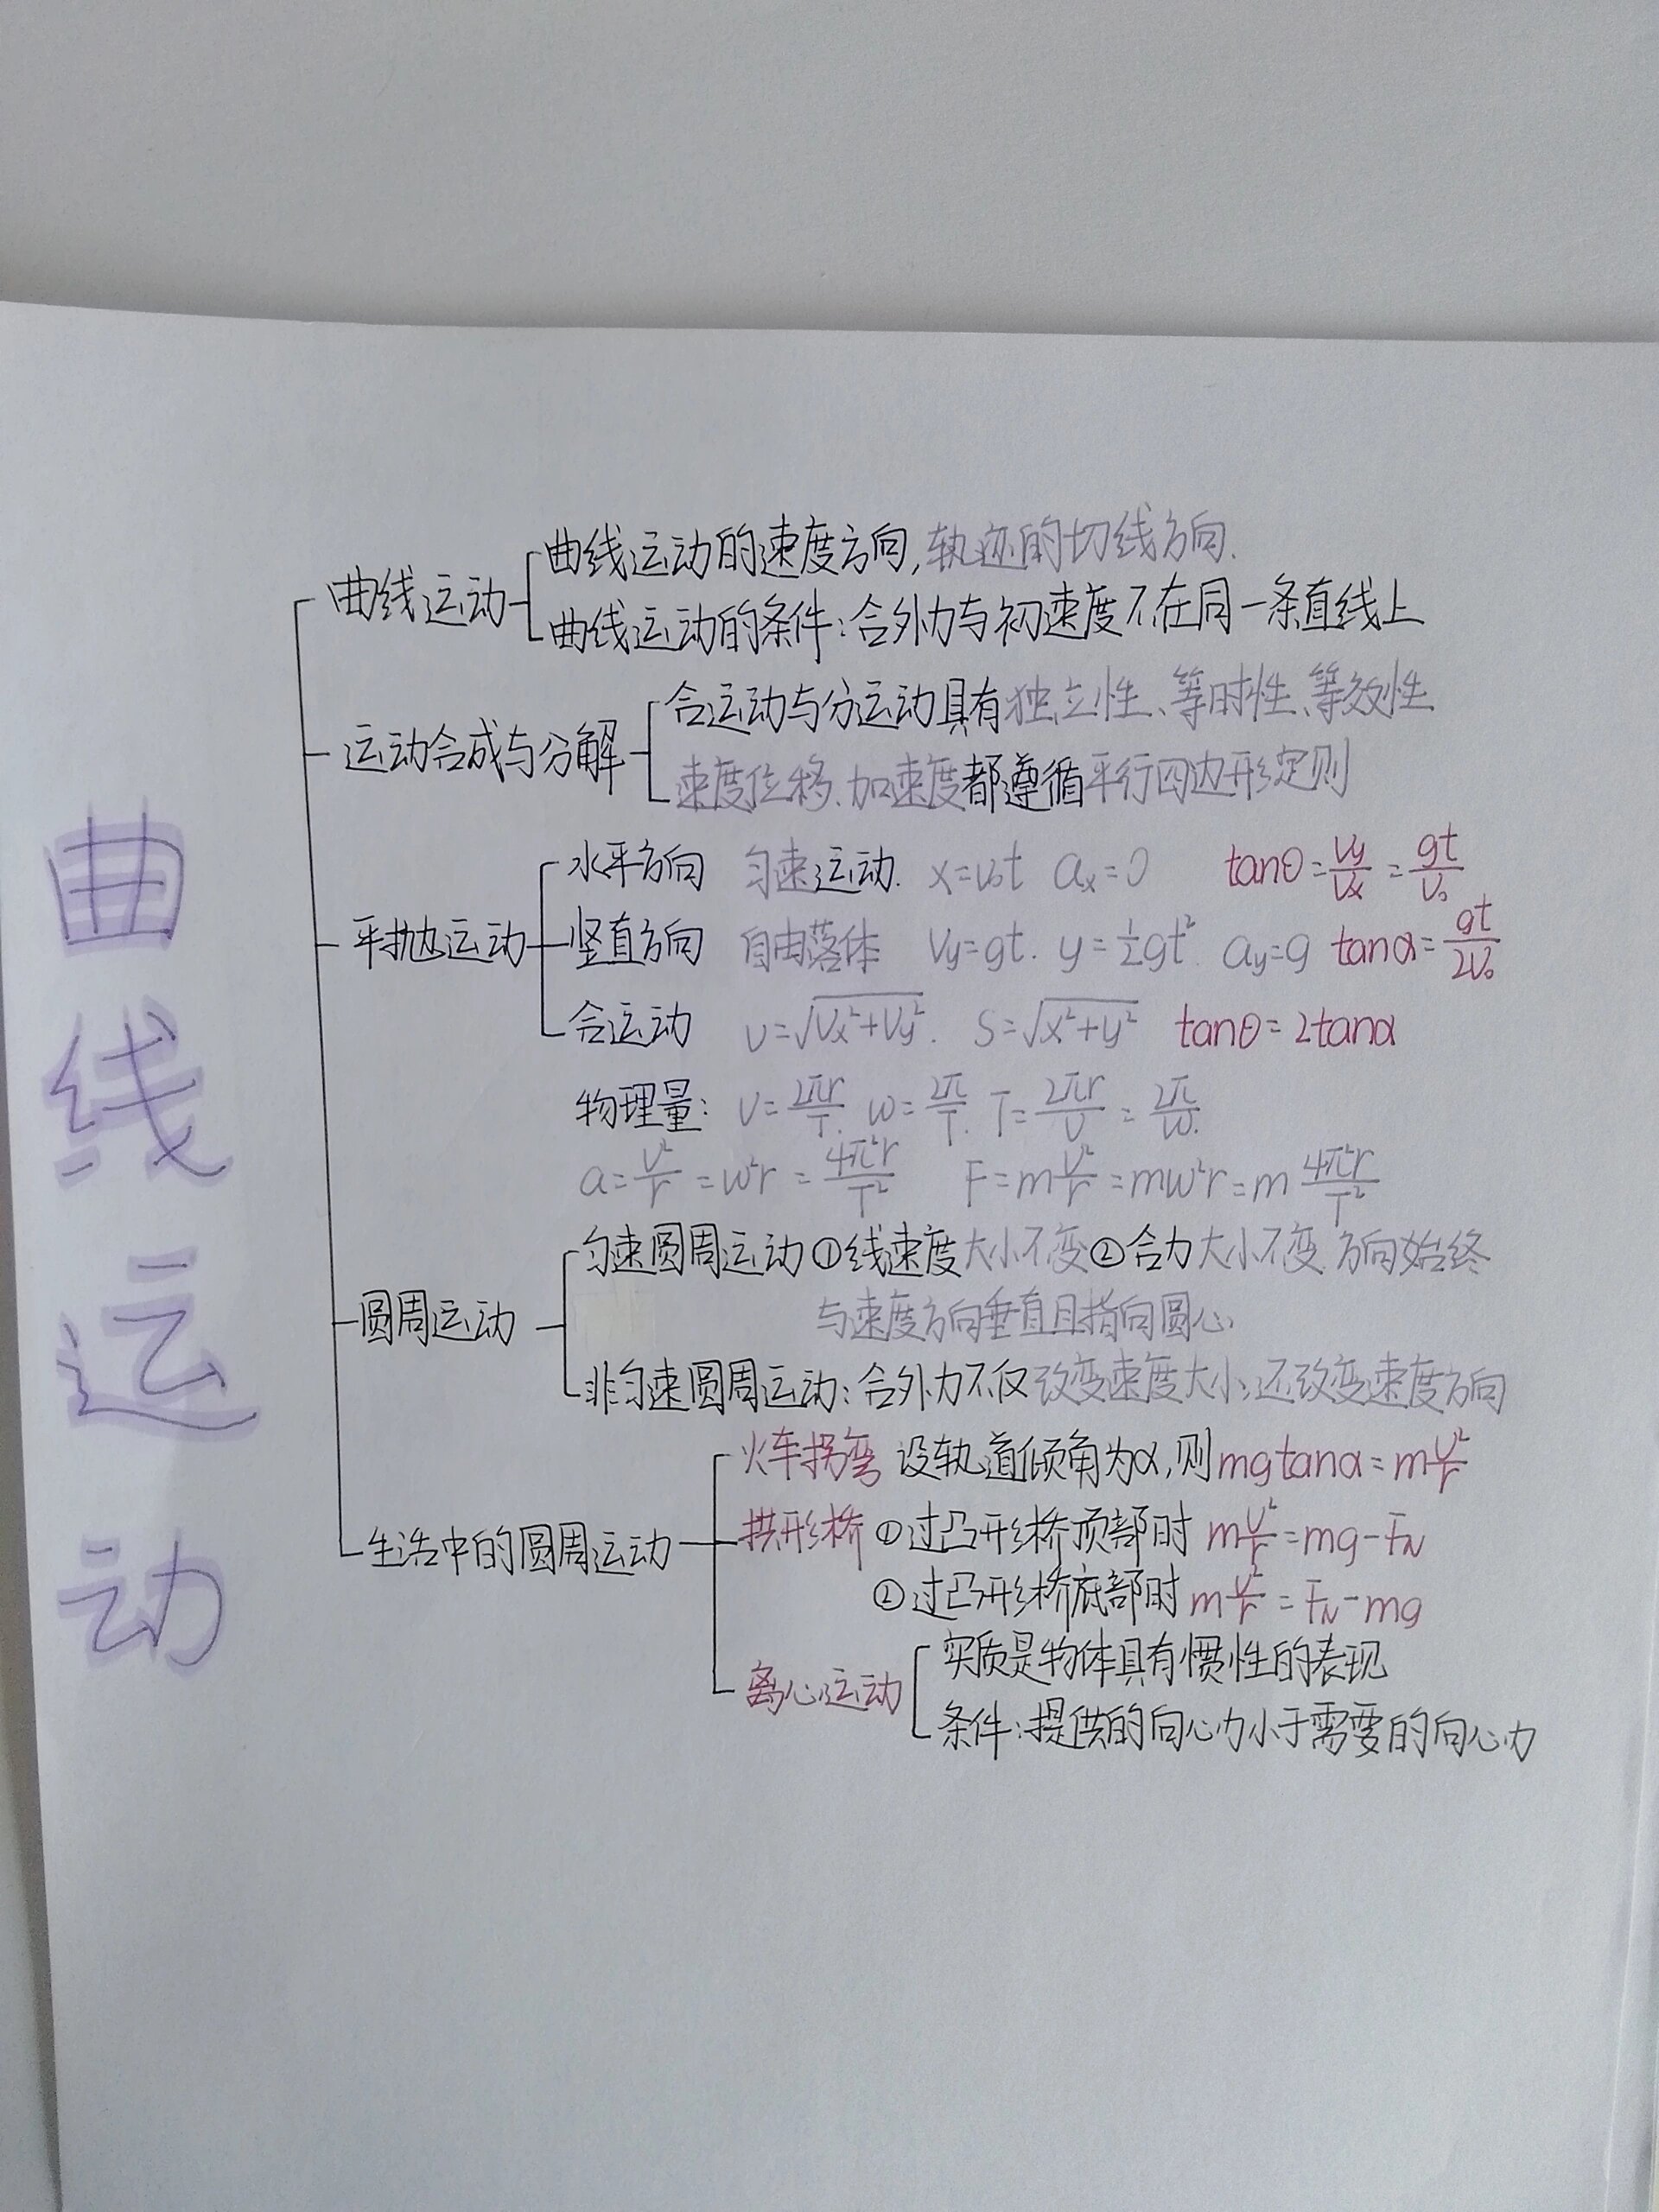 曲线运动
曲线运动
曲线运动的速度方向,轨迹的切线方向.
曲线运动的条件:合外力与初速度不在同一条直线上
运动合成与分解
合运动与分运动具有独立性、等时性、等效性
速度位移、加速度都遵循平行四边形定则
平抛运动
水平方向 匀速运动. x=v₀t aₓ=0 tanθ=Vy/Vx=gt/V₀
竖直方向 自由落体 Vy=gt. y=½gt² ay=g tanα=gt/2V₀
合运动 v=√(Vx²+Vy²). S=√(x²+y²) tanθ=2tanα
物理量: v=2πr/T. w=2π/T. T=2πr/v=2π/w.
a=v²/r=w²r=4π²r/T² F=mv²/r=mw²r=m4π²r/T²
圆周运动
匀速圆周运动①线速度大小不变②合力大小不变 方向始终
与速度方向垂直且指向圆心
非匀速圆周运动:合外力不仅改变速度大小,还改变速度方向
生活中的圆周运动
火车拐弯 设轨道倾角为α,则mgtanα=mv²/r
拱形桥 ①过凸形桥顶部时 mv²/r=mg-FN
②过凸形桥底部时 mv²/r=FN-mg
离心运动
实质是物体具有惯性的表现
条件:提供的向心力小于需要的向心力